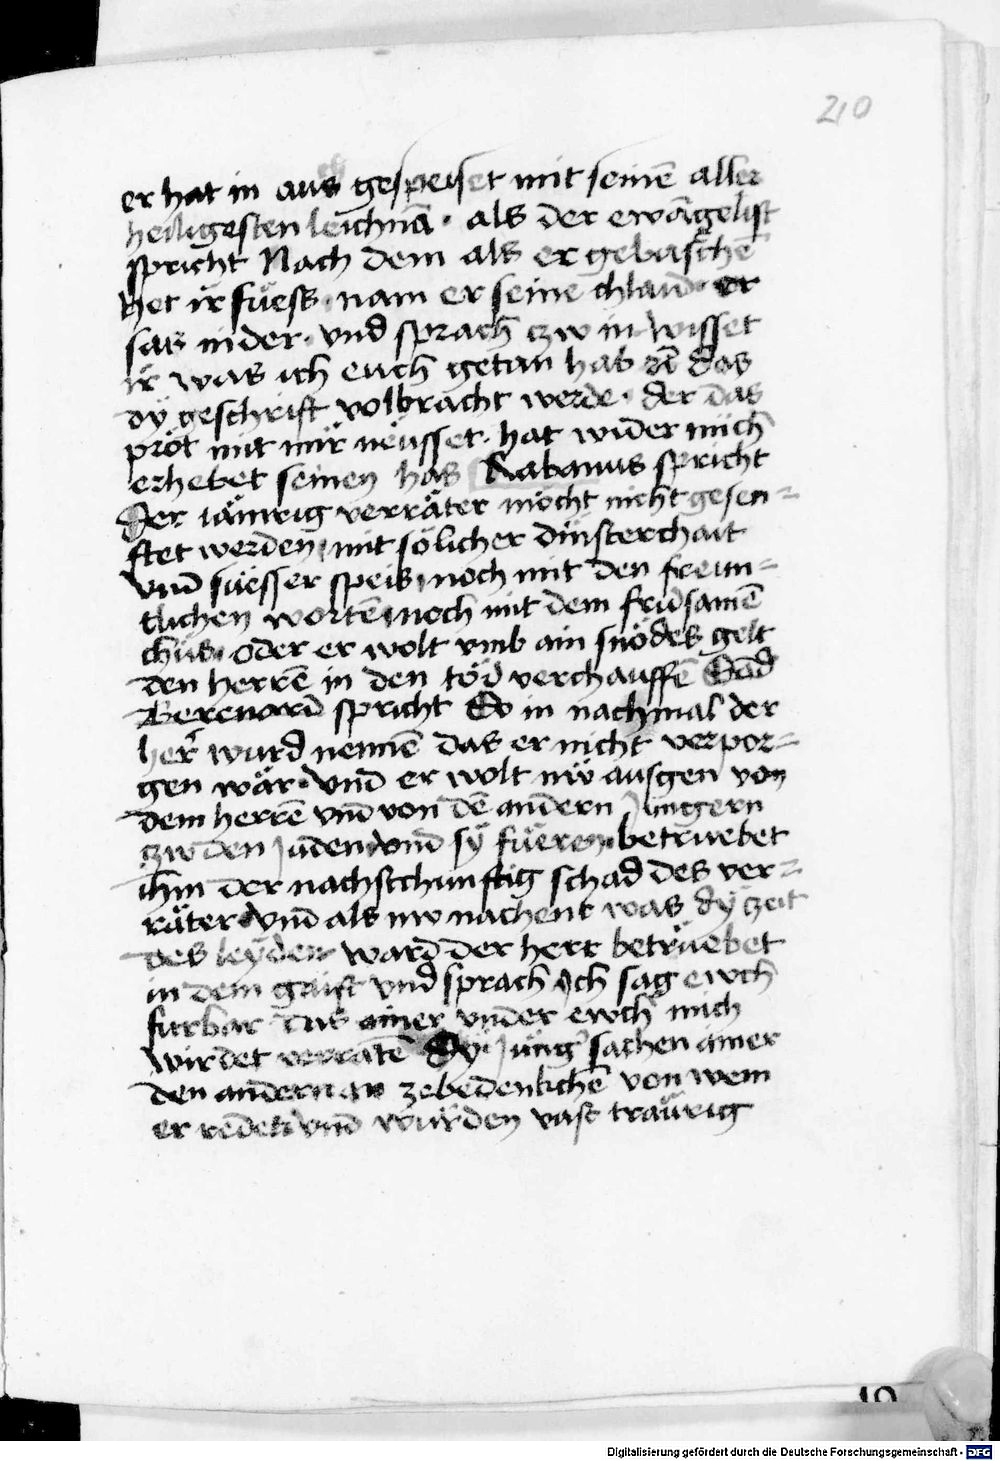 210
er hat in auß gespeiset mit seinē aller
heiligesten leichnā · als der ewāgelist
spricht Nach dem als er gebaschē
het ir füess · nam er seine chlaid · er
sas nider · vnd sprach czw in wisset
ir was ich euch getan hab das
dÿ geschrift volbracht werde · der das
pröt mit mir neüsset · hat wider mich
erhebet seinen has Rabanus spricht
Der iämrig verräter möcht nicht gesen=
ftet werden mit sölicher dinsterchait
vnd süesser speis noch mit den freun=
tlichen wortē noch mit dem fridsamē
chüs · oder er wolt vmb ain snödes gelt
den herrē in den töd verchauffē Sād
Berenard spricht Do in nachmal der
her wurd nennē das er nicht verpor=
gen wär · vnd er wolt nw ausgen von
dem herrē vnd von dē andern Jüngern
czw den Juden vnd sÿ füeren · betruebet
ihm der nachstchunftig schad des ver=
räter vnd als nw nachent was dÿ zeit
des leÿden ward der herr betrüebet
in dem gaist vnd sprach Ich sag ewch
furbar das ainer vnder ewch mich
wirdet verratē Dÿ Jüng sachen ainer
den andern an zebedenkchē von wem
er redet vnd würden vast träwrig
19
Digitalisierung gefördert durch die Deutsche Forschungsgemeinschaft - DFG